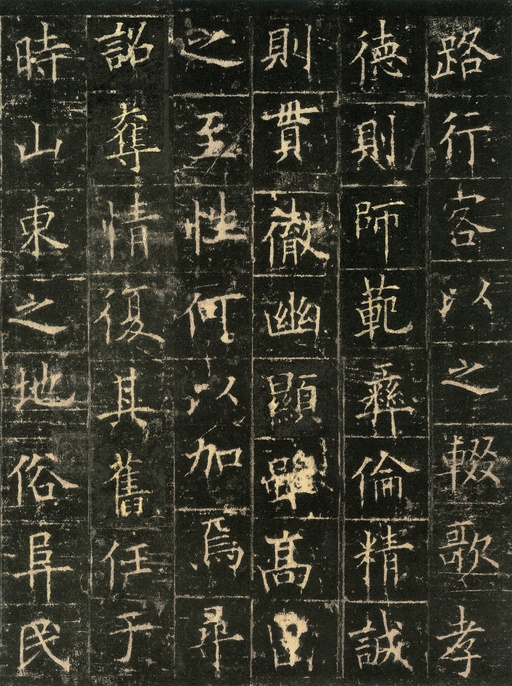 路行客以之輟歌孝
德則師範彝倫精誠
則貫徹幽顯雖高
之至性何以加焉尋
詔奪情復其舊任于
時山東之地俗阜民